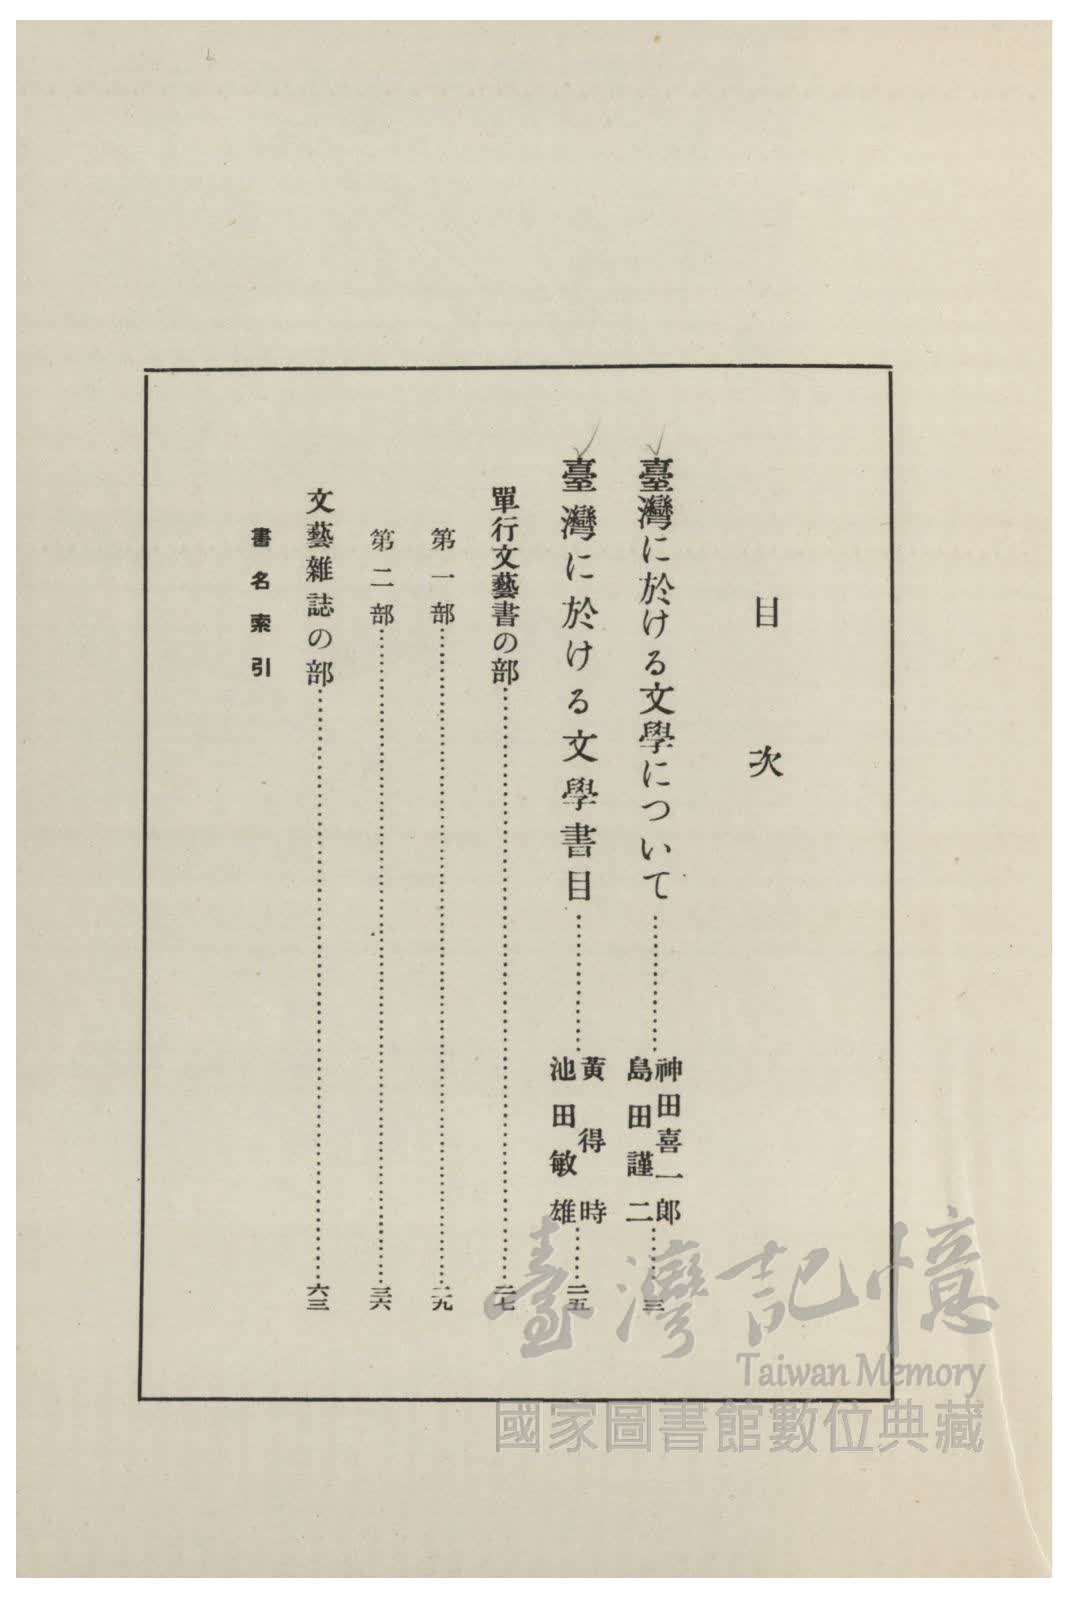 目次
臺灣に於ける文學について…………神田喜一郎
島田謹二……三
臺灣に於ける文學書目…………黃得時
池田敏雄……二五
單行文藝書の部…………二七
第一部…………二九
第二部…………三六
文藝雜誌の部…………六三
書名索引
臺灣記憶
Taiwan Memory
國家圖書館數位典藏